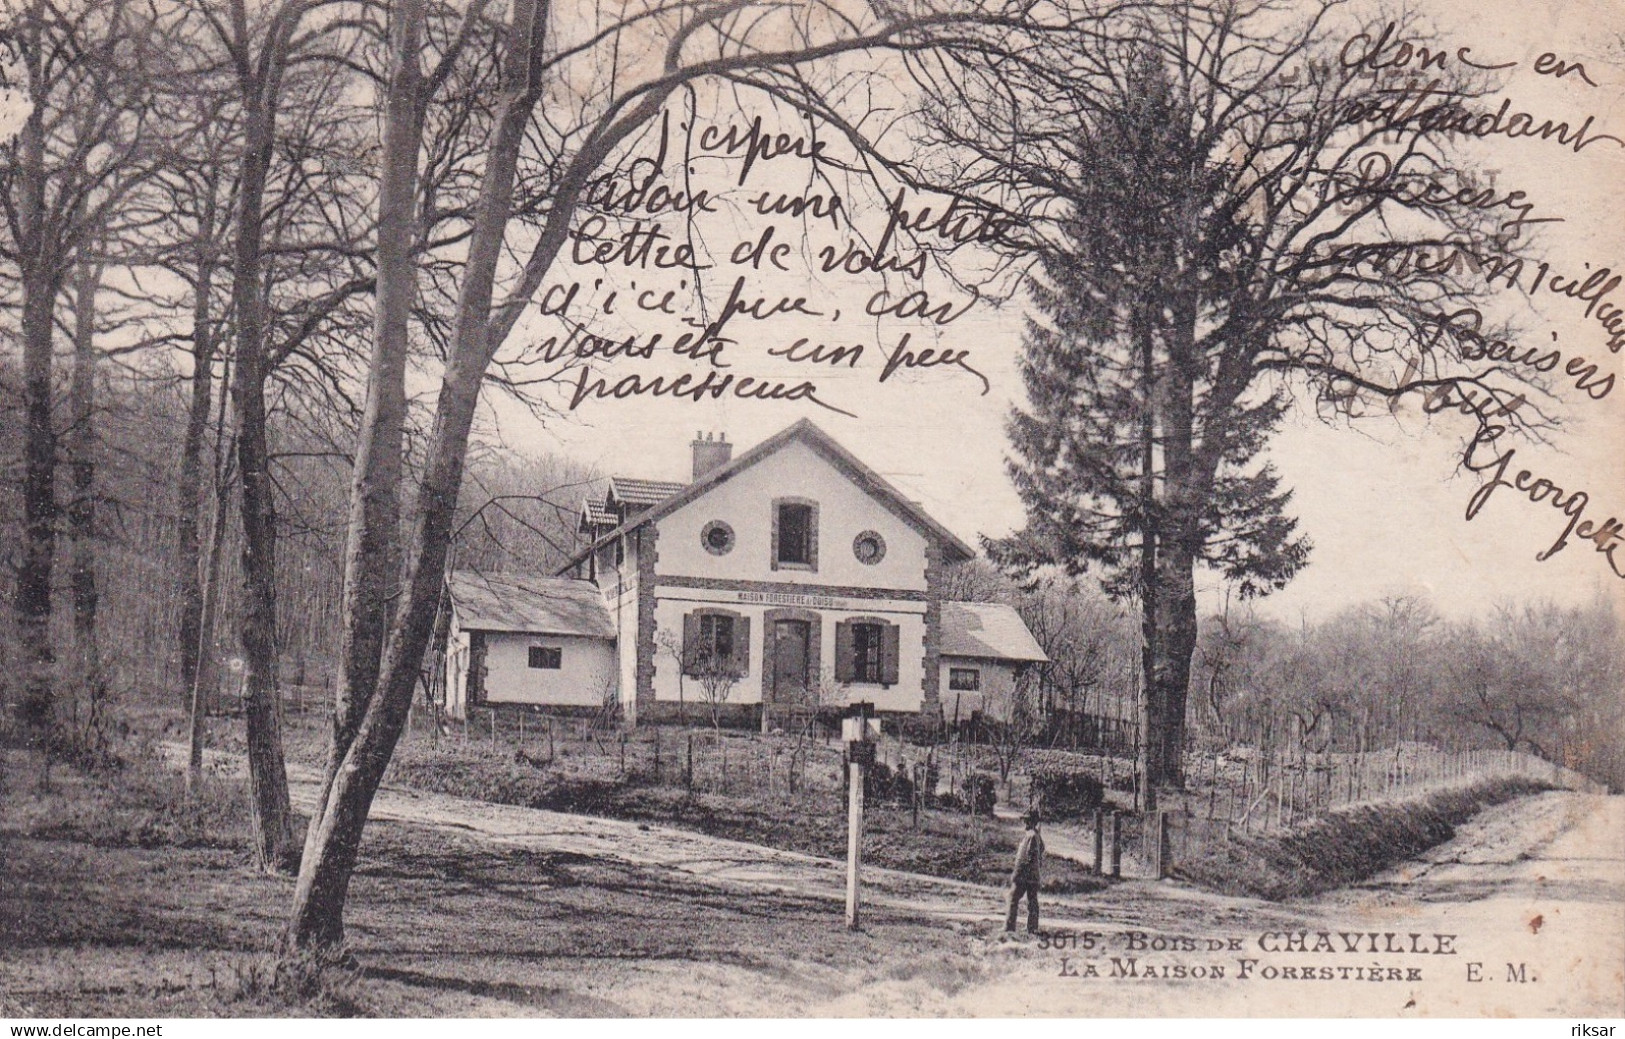 j'espère
avoir une petite
lettre de vous
d'ici peu, car
vous êtes un peu
paresseux
donc en
attendant
Recevez
mes meilleurs
Baisers
Georgette
MAISON FORESTIÈRE
3015. BOIS DE CHAVILLE
LA MAISON FORESTIÈRE E. M.
www.delcampe.net
riksar